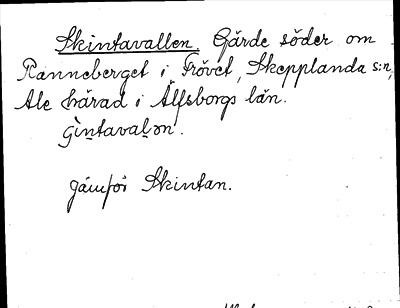 Skintavallen Gärde söder om
Ranneberget i Frövet, Skepplanda s:n,
Ale härad i Älfsborgs län.
gintavalən.
jämför Skintan.